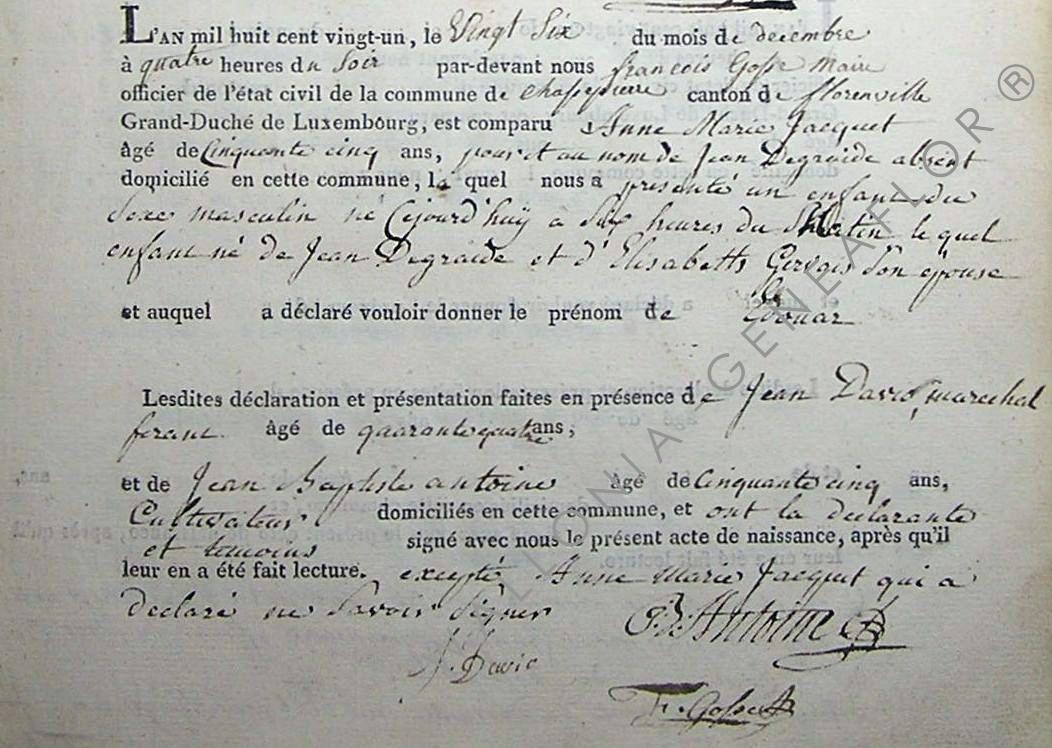 L'AN mil huit cent vingt-un, le Vingt Six du mois de decembre
à quatre heures du Soir par-devant nous françois Gosse Maire
officier de l'état civil de la commune de Chassepierre canton de florenville
Grand-Duché de Luxembourg, est comparu Anne Marie Jacquet
âgé de Cinquante cinq ans, pour et au nom de Jean Degraide absent
domicilié en cette commune, la quel nous a presenté un enfant du
Sexe masculin né Cejourd'huy à Six heures du Matin le quel
enfant né de Jean Degraide et d'Elisabette Gerges Son epouse
et auquel a déclaré vouloir donner le prénom de Edouar
Lesdites déclaration et présentation faites en présence de Jean David, marechal
ferant âgé de quarante quatre ans,
et de Jean Baptiste antoine âgé de Cinquante cinq ans,
Cultivateur domiciliés en cette commune, et ont la déclarante
et temoins signé avec nous le présent acte de naissance, après qu'il
leur en a été fait lecture. excepté Anne Marie Jacquet qui a
declaré ne Savoir Signer
J. B. Antoine
J. David
F. Gosse
LIONAGENEAFLOR ®